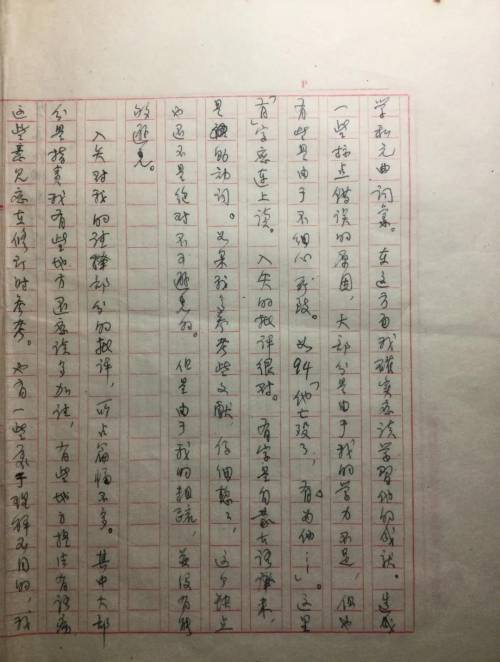 学和元曲词汇。在这方面我確实应该学習他的成就。造成
一些标点错误的原因，大部分是由于我的学力不足，但也
有些是由于不细心所致。如94「他亡殁了，有为他……」。这里
「有」字应连上读。入矢的批评很对。有字是蒙古语譯来，
是助动词。如果我多参考些文献，仔细想想，这个缺点
也还不是绝对不可避免的。但是由于我的粗疏，并没有能
够避免。
入矢对我的注释部分的批评，所占篇幅不多。其中大部
分是指责我有些地方还应该多加注，有些地方有语病
这些意见应在修订时参考。也有一些属于理解不同的，我